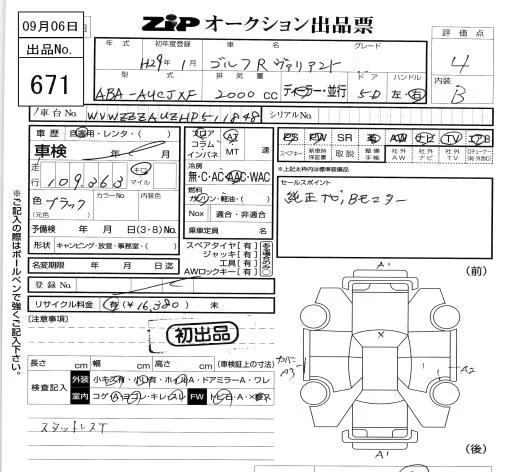 09月06日
ZIP オークション出品票
出品No.
671
年式 初年度登録 車名 グレード 評価点
H29年 1月 ゴルフR ヴァリアント 4
型式 排気量 ドア ハンドル 内装
ABA-AUCJXF 2000cc ディーラー・並行 5D 左・右 B
車台No. WVWZZZAUZHP511848 シリアルNo.
車歴 自家用・レンタ・( )
車検 年 月
フロア AT
コラム
インパネ MT 速
PS PW SR AW ナビ TV
スペアキー 新車時保証書 取説 整備手帳 社外AW 社外ナビ 社外TV
※上記太枠内は標準装備品
走行 109,363 キロ マイル
冷房
無・C・AC・AAC・WAC
燃料
ガソリン・軽油・( )
色 ブラック (元色) カラーNo. 内装色
Nox 適合・非適合
セールスポイント
純正ナビ,Bモニター
予備検 年 月 日(3・8)No.
乗車定員 名
形状 キャンピング・放宣・事務室・( )
スペアタイヤ[有]
ジャッキ[有]
工具[有]
AWロックキー[有]
名変期限 年 月 日迄
登録No.
リサイクル料金 有(¥16,380) 未
(前)
[注意事項]
初出品
長さ cm 幅 cm 高さ cm (車検証上の寸法)
検査記入 外装 小キズ有・小凹有・ホイルA・ドアミラーA・ワレ
室内 コゲA・ヨゴレ・キレ・スレ FW トビ石A・×
スタットレスT
A1
カバー
A3
A2
A1
(後)
※ご記入の際はボールペンで強くご記入下さい。